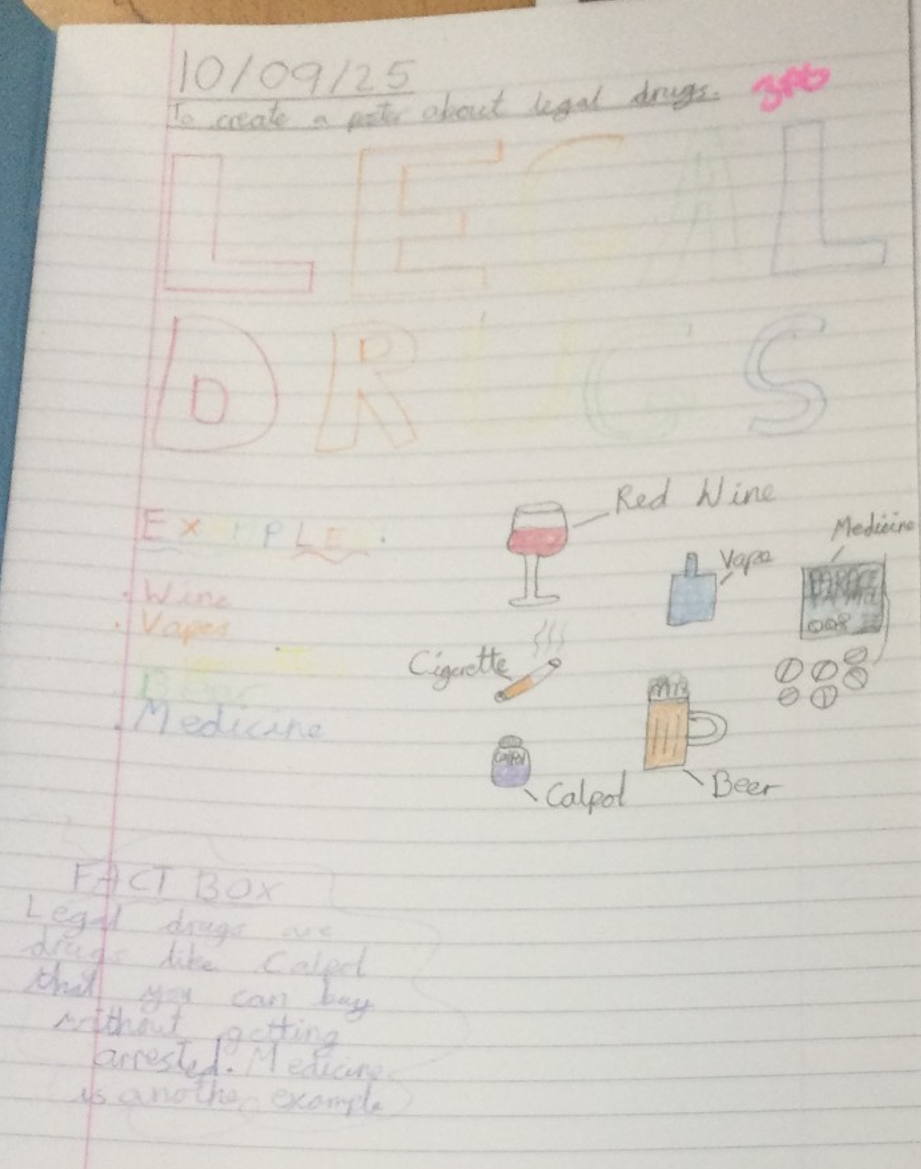 10/09/25
To create a poster about legal drugs.
LEGAL
DRUGS
Red Wine
EXMPLE
Medicine
Vape
Wine
Vapes
Cigerette
Beer
Medicine
Calpol
Calpol
Beer
FACT BOX
Legal drugs are
drugs like Calpol
that you can buy
without getting
arrested. Medicine
is another example